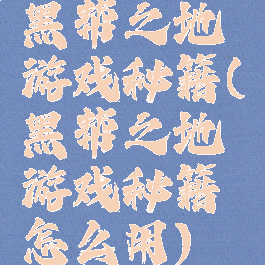 黑帮之地
游戏秘籍(
黑帮之地
游戏秘籍
怎么用)